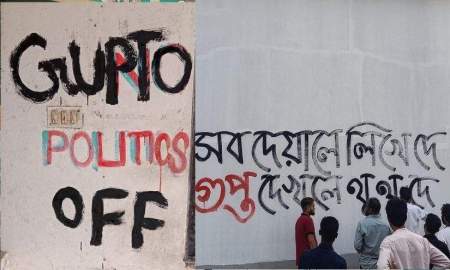 GUPTO
POLITICS
OFF
সব দেয়ালে লিখে দে
গুপ্ত দেখলে থু থু দে